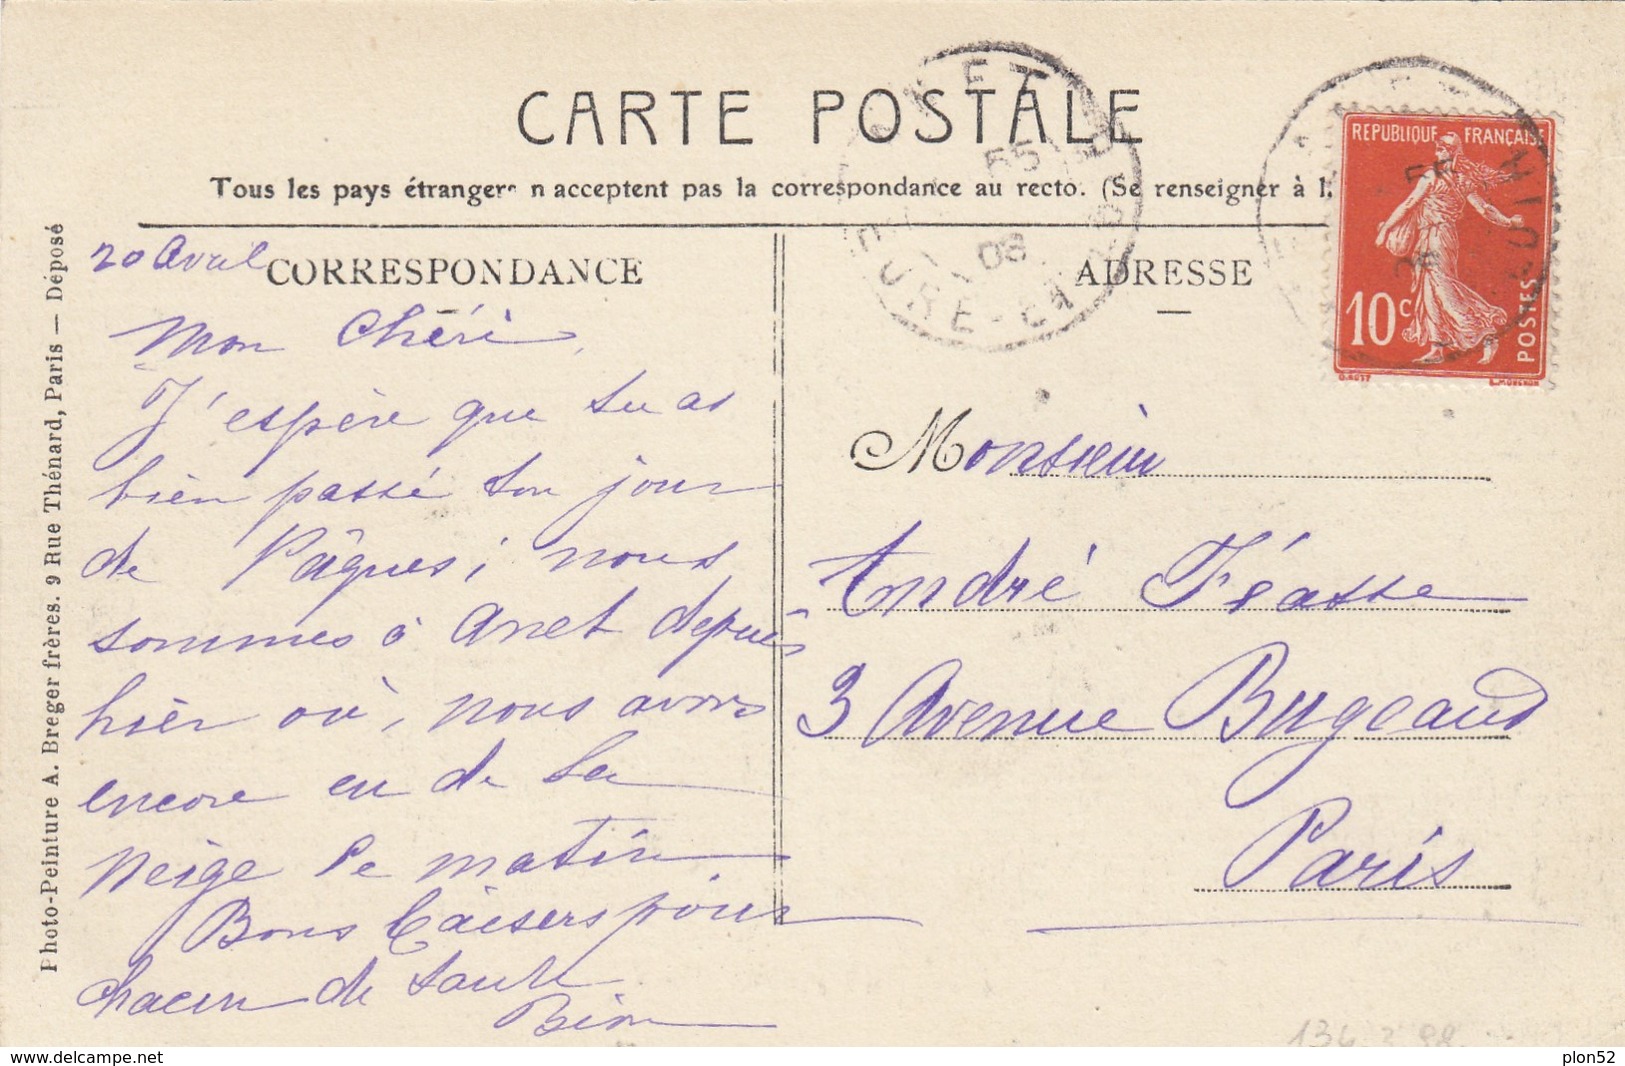 CARTE POSTALE
Tous les pays étrangers n'acceptent pas la correspondance au recto. (Se renseigner à l
CORRESPONDANCE
ADRESSE
Photo-Peinture A. Breger frères. 9 Rue Thénard, Paris — Déposé
20 Avril
Mon Chéri,
J'espère que tu as
bien passé ton jour
de Pâques; nous
sommes à Anet depuis
hier où, nous avons
encore eu de la
neige le matin
Bons baisers pour
chacun de
REPUBLIQUE FRANÇAISE
10c
POSTES
ANET
EURE-ET-LOIR
08
Monsieur
André
3 Avenue Bugeaud
Paris
delcampe.net
plon52